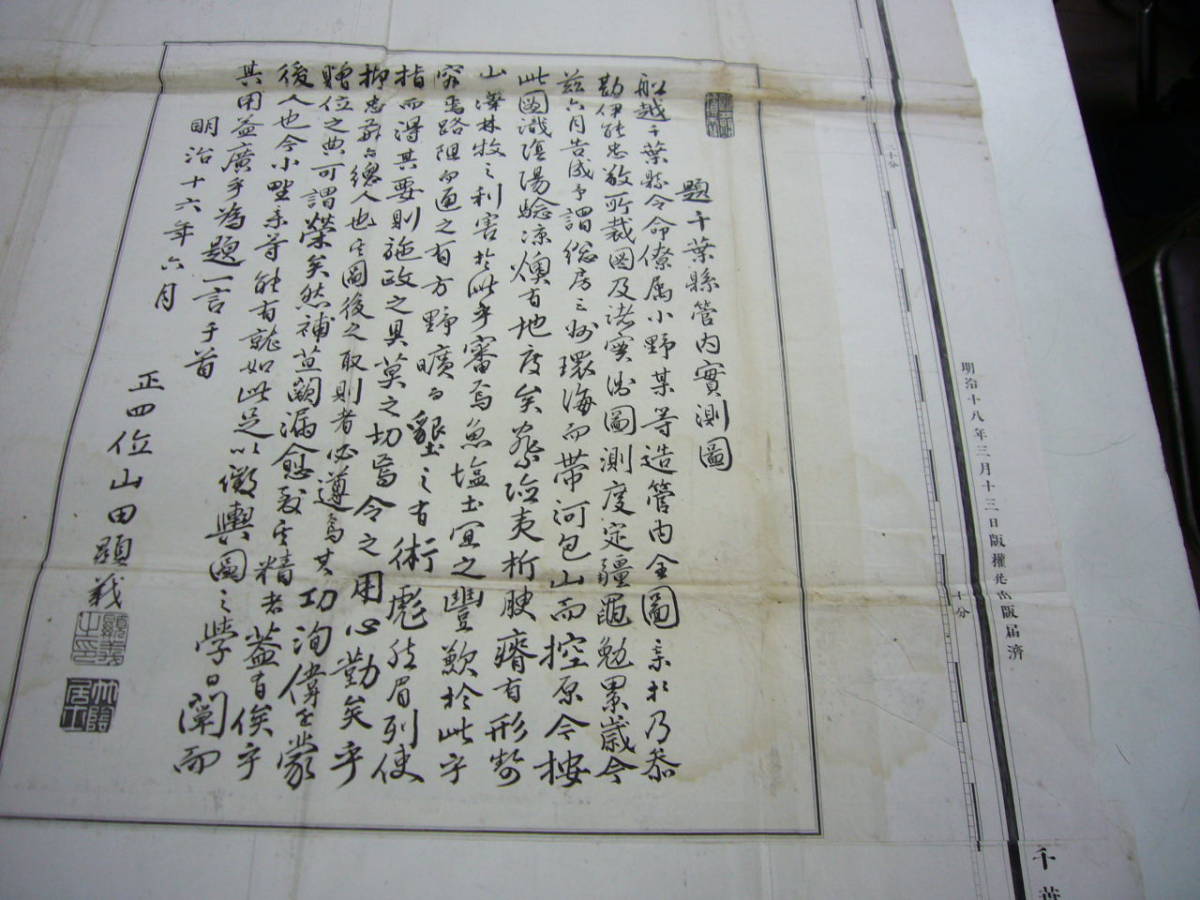 題千葉縣管内實測圖
船越千葉縣令命僚属小野某等造管内全圖於乃参
勘伊能忠敬所裁図及諸實測圖測度定疆黽勉累歳今
茲六月告成予謂総房三州環海而帯河包山而控原今按
此図陰陽燠有地度矣察険夷析腴瘠有形勢
山澤林牧之利害於此乎審焉魚塩土宜之豐歉於此乎
究焉路阻而通之有方野曠而墾之有術彪然眉列使
指而得其要則施政之具莫之切焉令之用心勤矣乎
抑忠敬総人也其圖後之取則者必遵焉其功洵偉其蒙
贈位之典可謂榮矣然補苴闕漏愈致其精者蓋有俟乎
後人也今小野某等能有就如此足以徴輿圖之學日闡而
其用益廣乎為題一言于首
明治十六年六月
正四位山田顕義
顕義之印
明治十八年三月十三日版權免許出版届済
二十分
十分
千葉